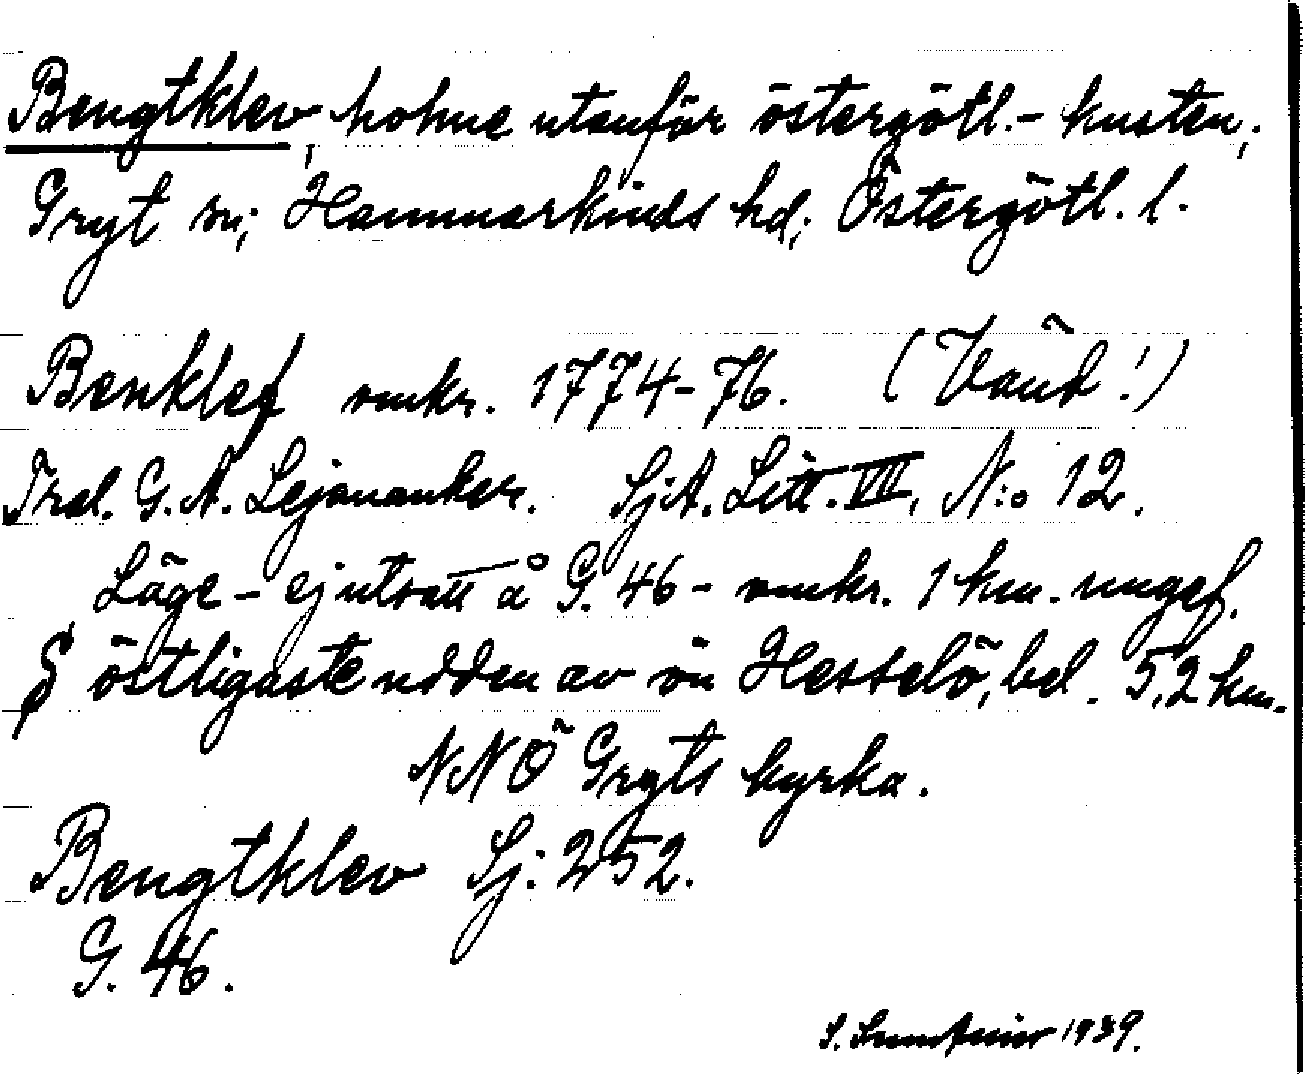 Bengtklev, holme utanför östergötl.- kusten,
Gryt sn; Hammarkinds hd; Östergötl. l.
Benklef omkr. 1774-76. (Vänd!)
Tral. G. A. Lejonanker. SjA. Litt. VII, N:o 12.
Läge - ej utsatt å G. 46 - omkr. 1 km. ungef.
S östligaste udden av ön Hesselö, bel. 5,2 km.
NNÖ Gryts kyrka.
Bengtklev Sj: 252.
G. 46.
S. 1939.